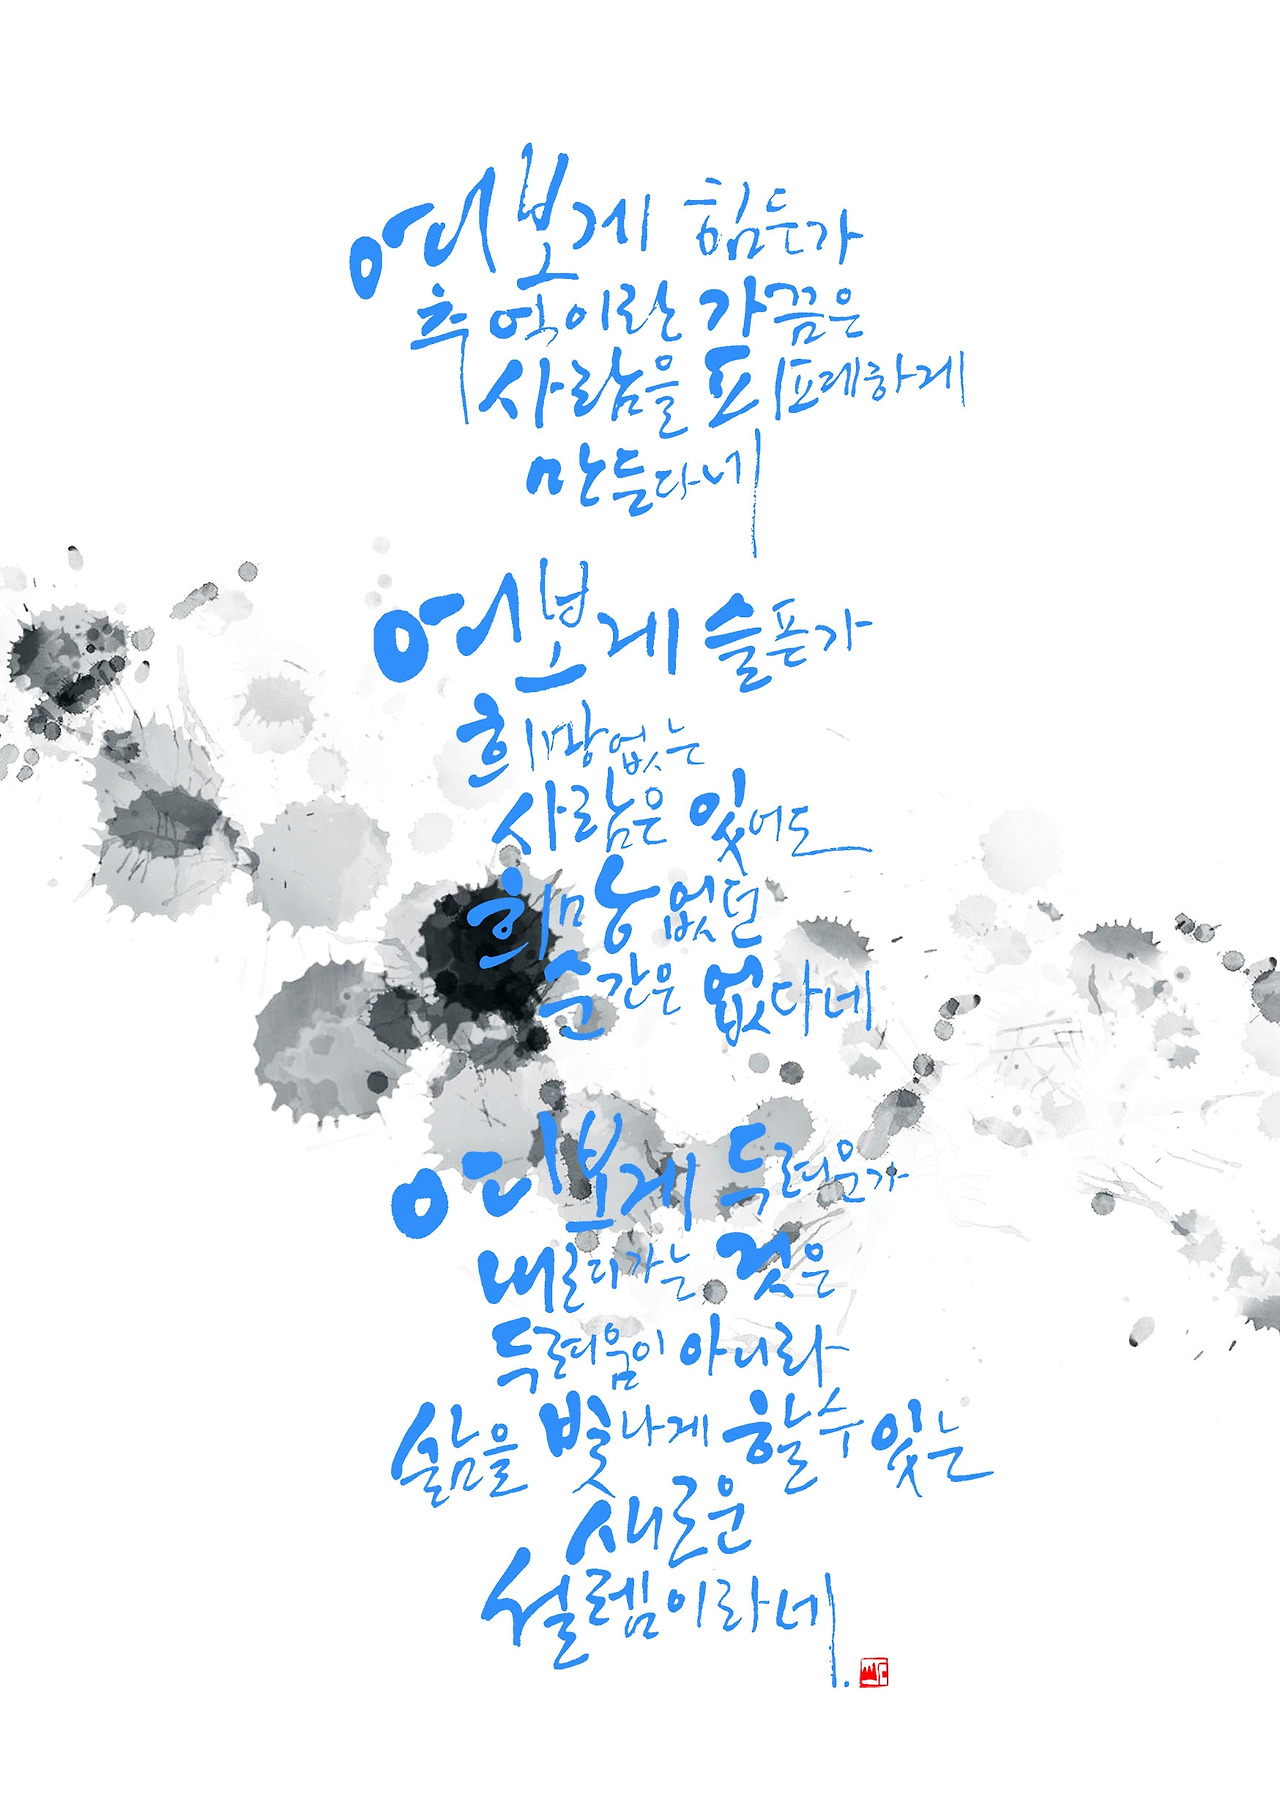 여보게 힘든가
추억이란 가끔은
사람을 피폐하게
만든다네
여보게 슬픈가
희망없는
사람은 있어도
희망 없던
순간은 없다네
여보게 두려운가
내려가는 것은
두려움이 아니라
삶을 빛나게 할 수 있는
새로운
설렘이라네.